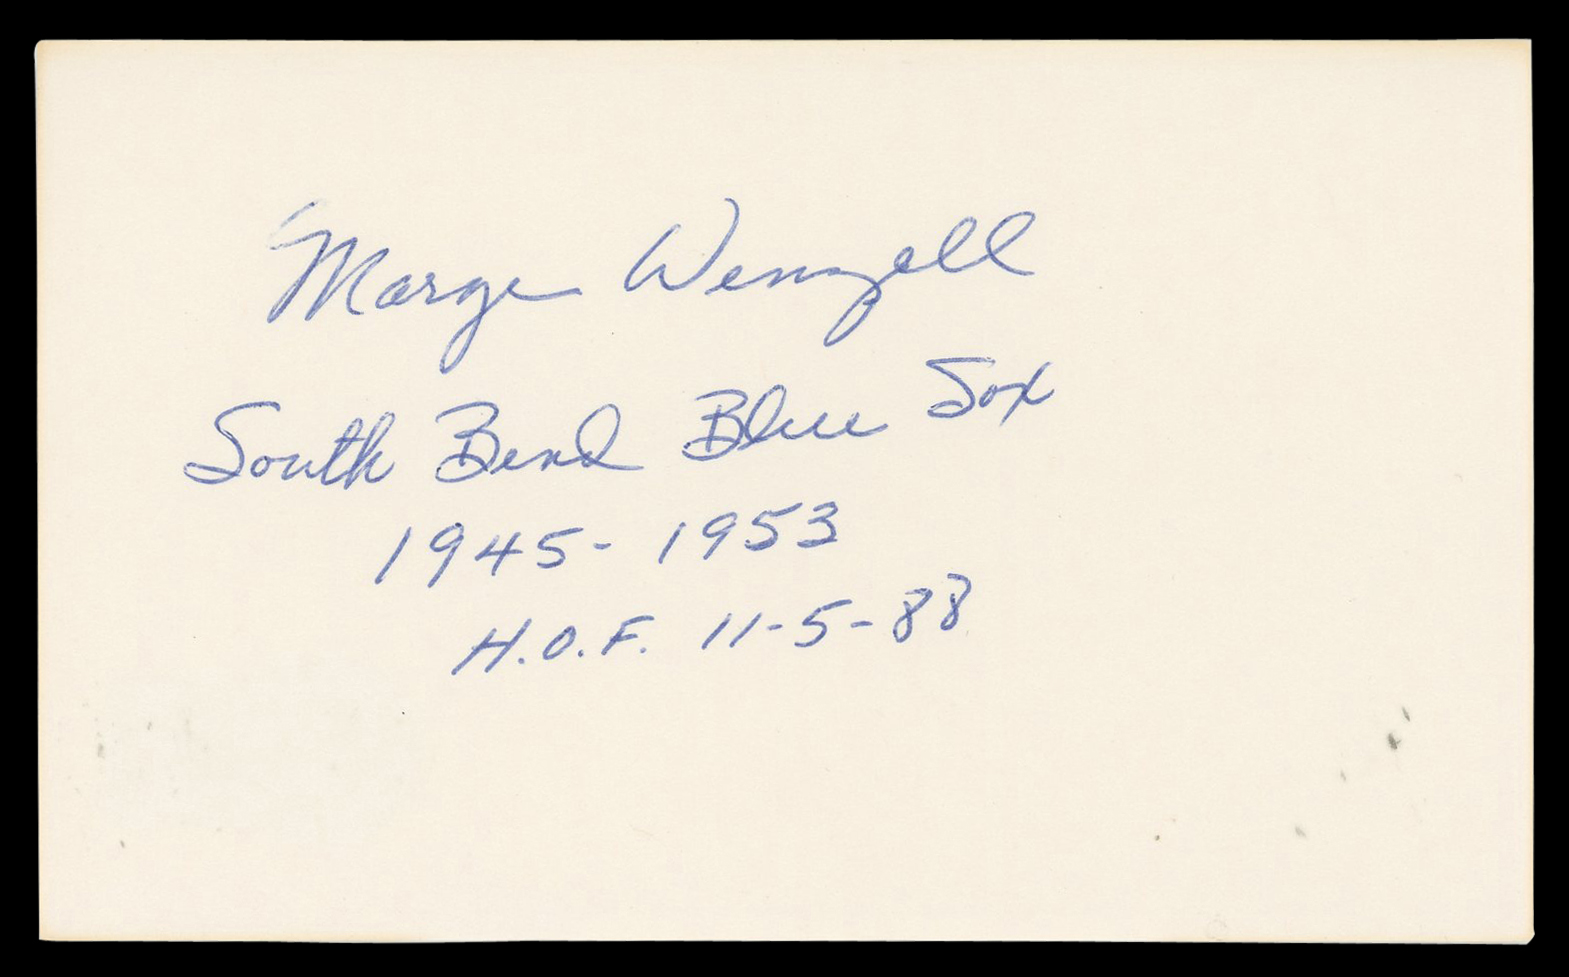 Marge Wenzell
South Bend Blue Sox
1945-1953
H.O.F. 11-5-88